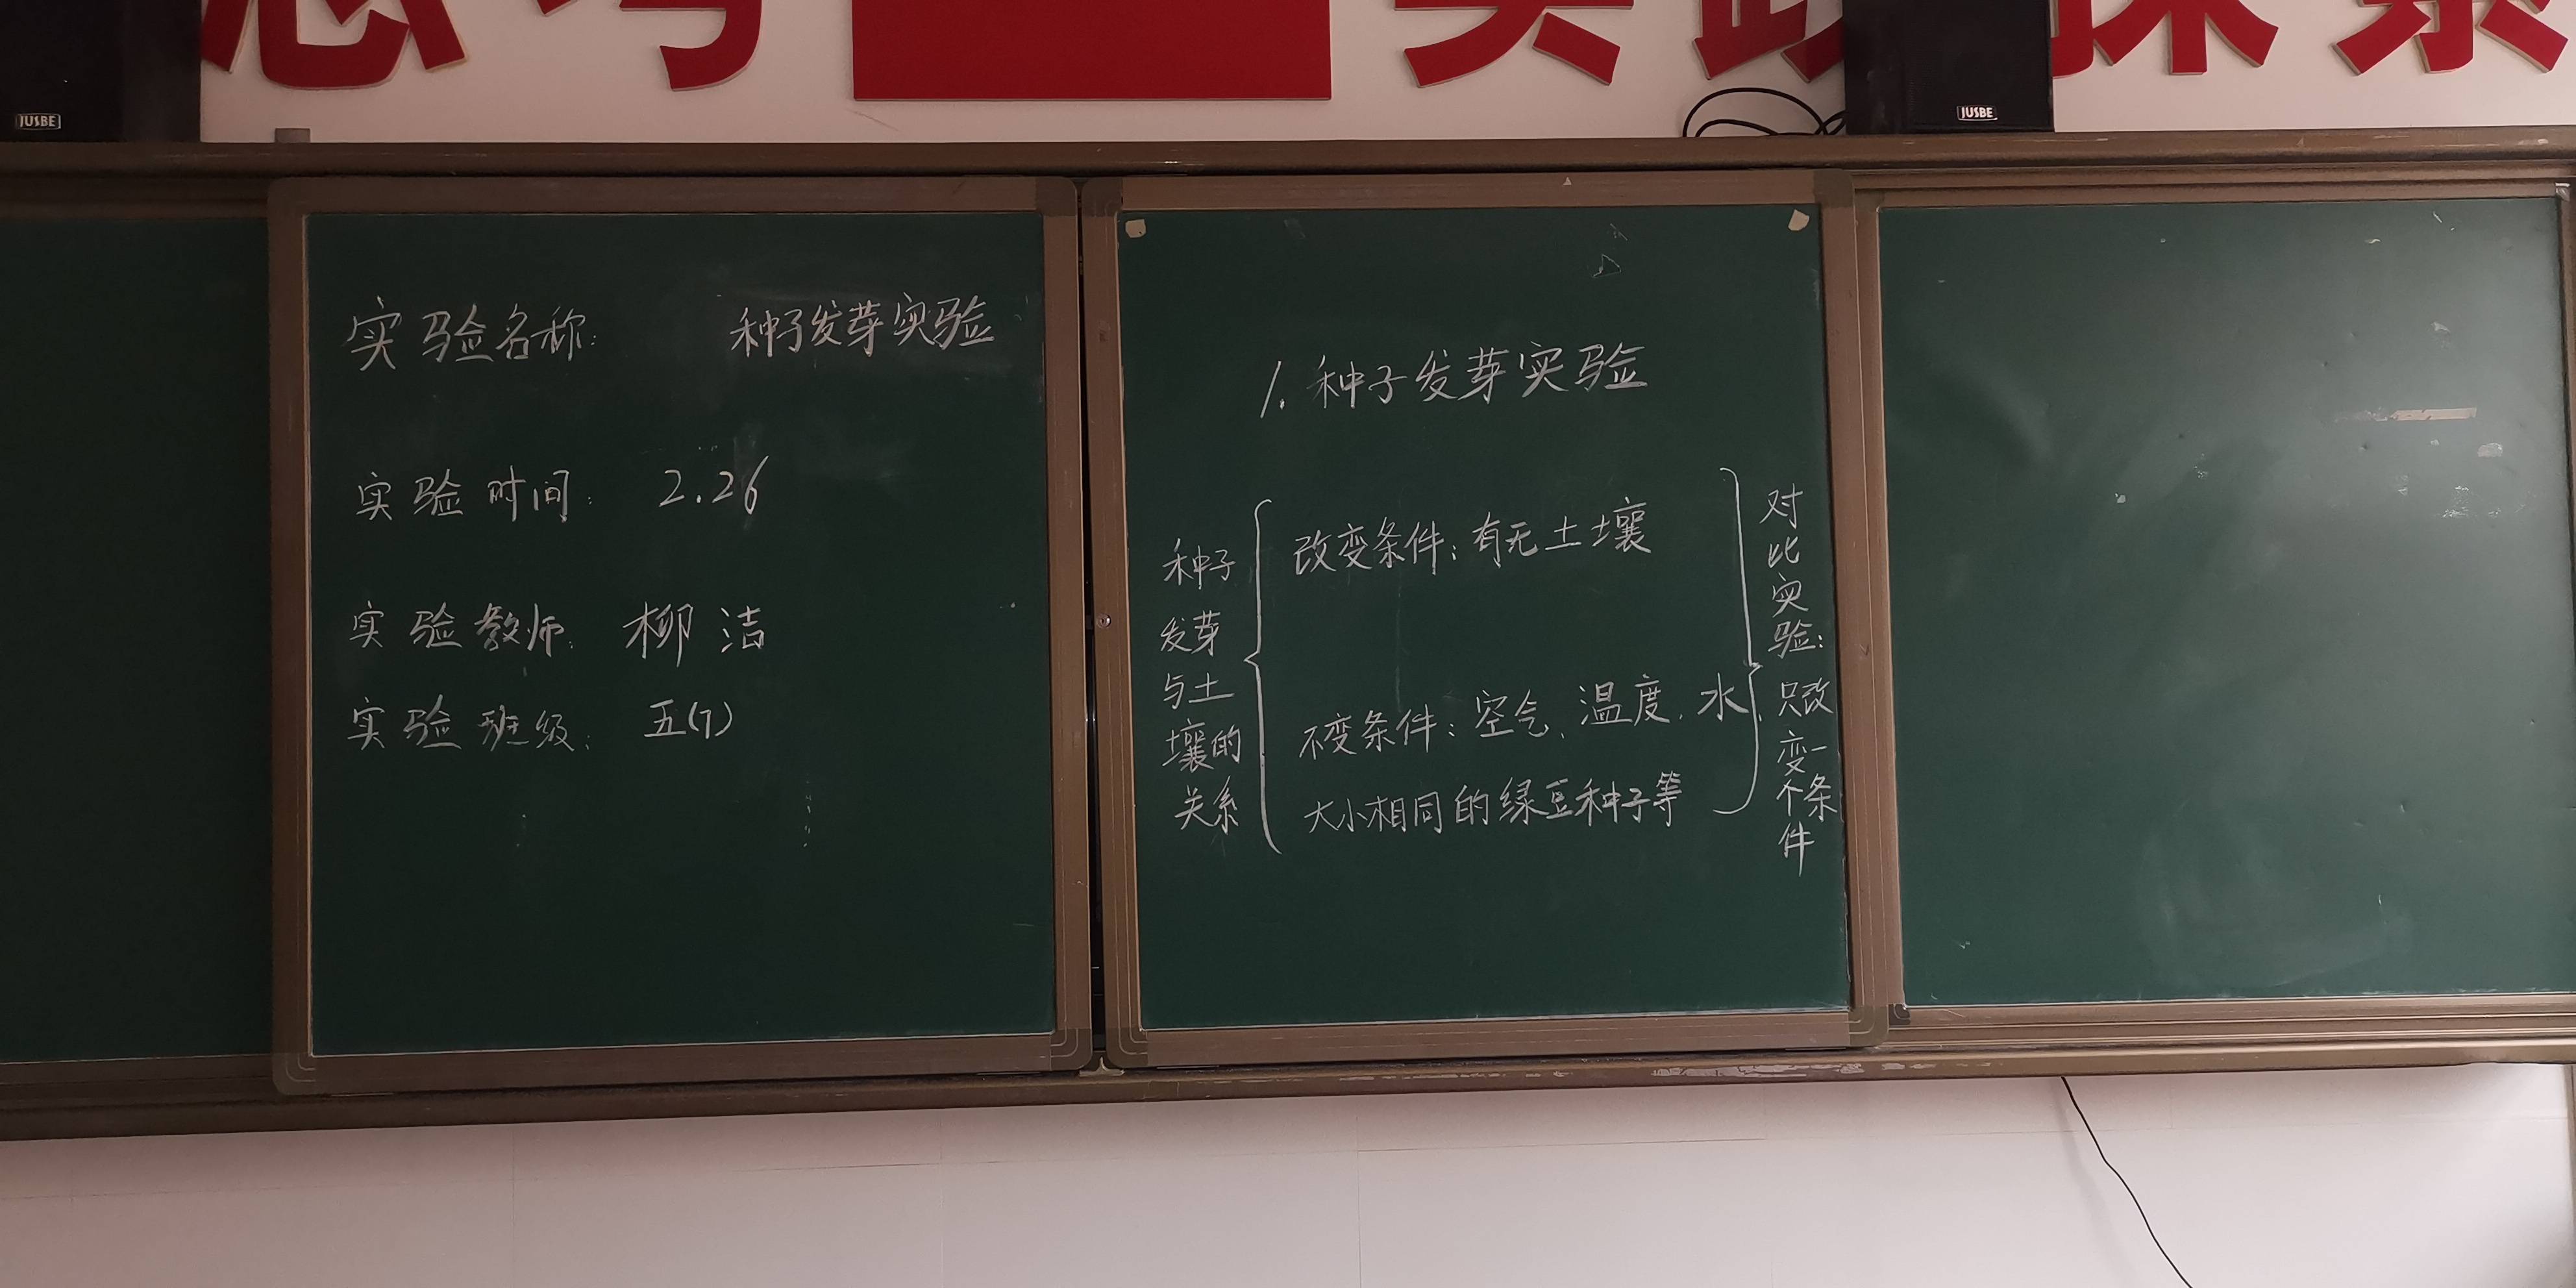 思考 实践 探索
JUSBE
JUSBE
实验名称: 种子发芽实验
实验时间: 2.26
实验教师: 柳洁
实验班级: 五(7)
1. 种子发芽实验
种子
发芽
与土
壤的
关系
改变条件: 有无土壤
不变条件: 空气、温度、水、
大小相同的绿豆种子等
对
比
实
验:
只改
变一
个条
件